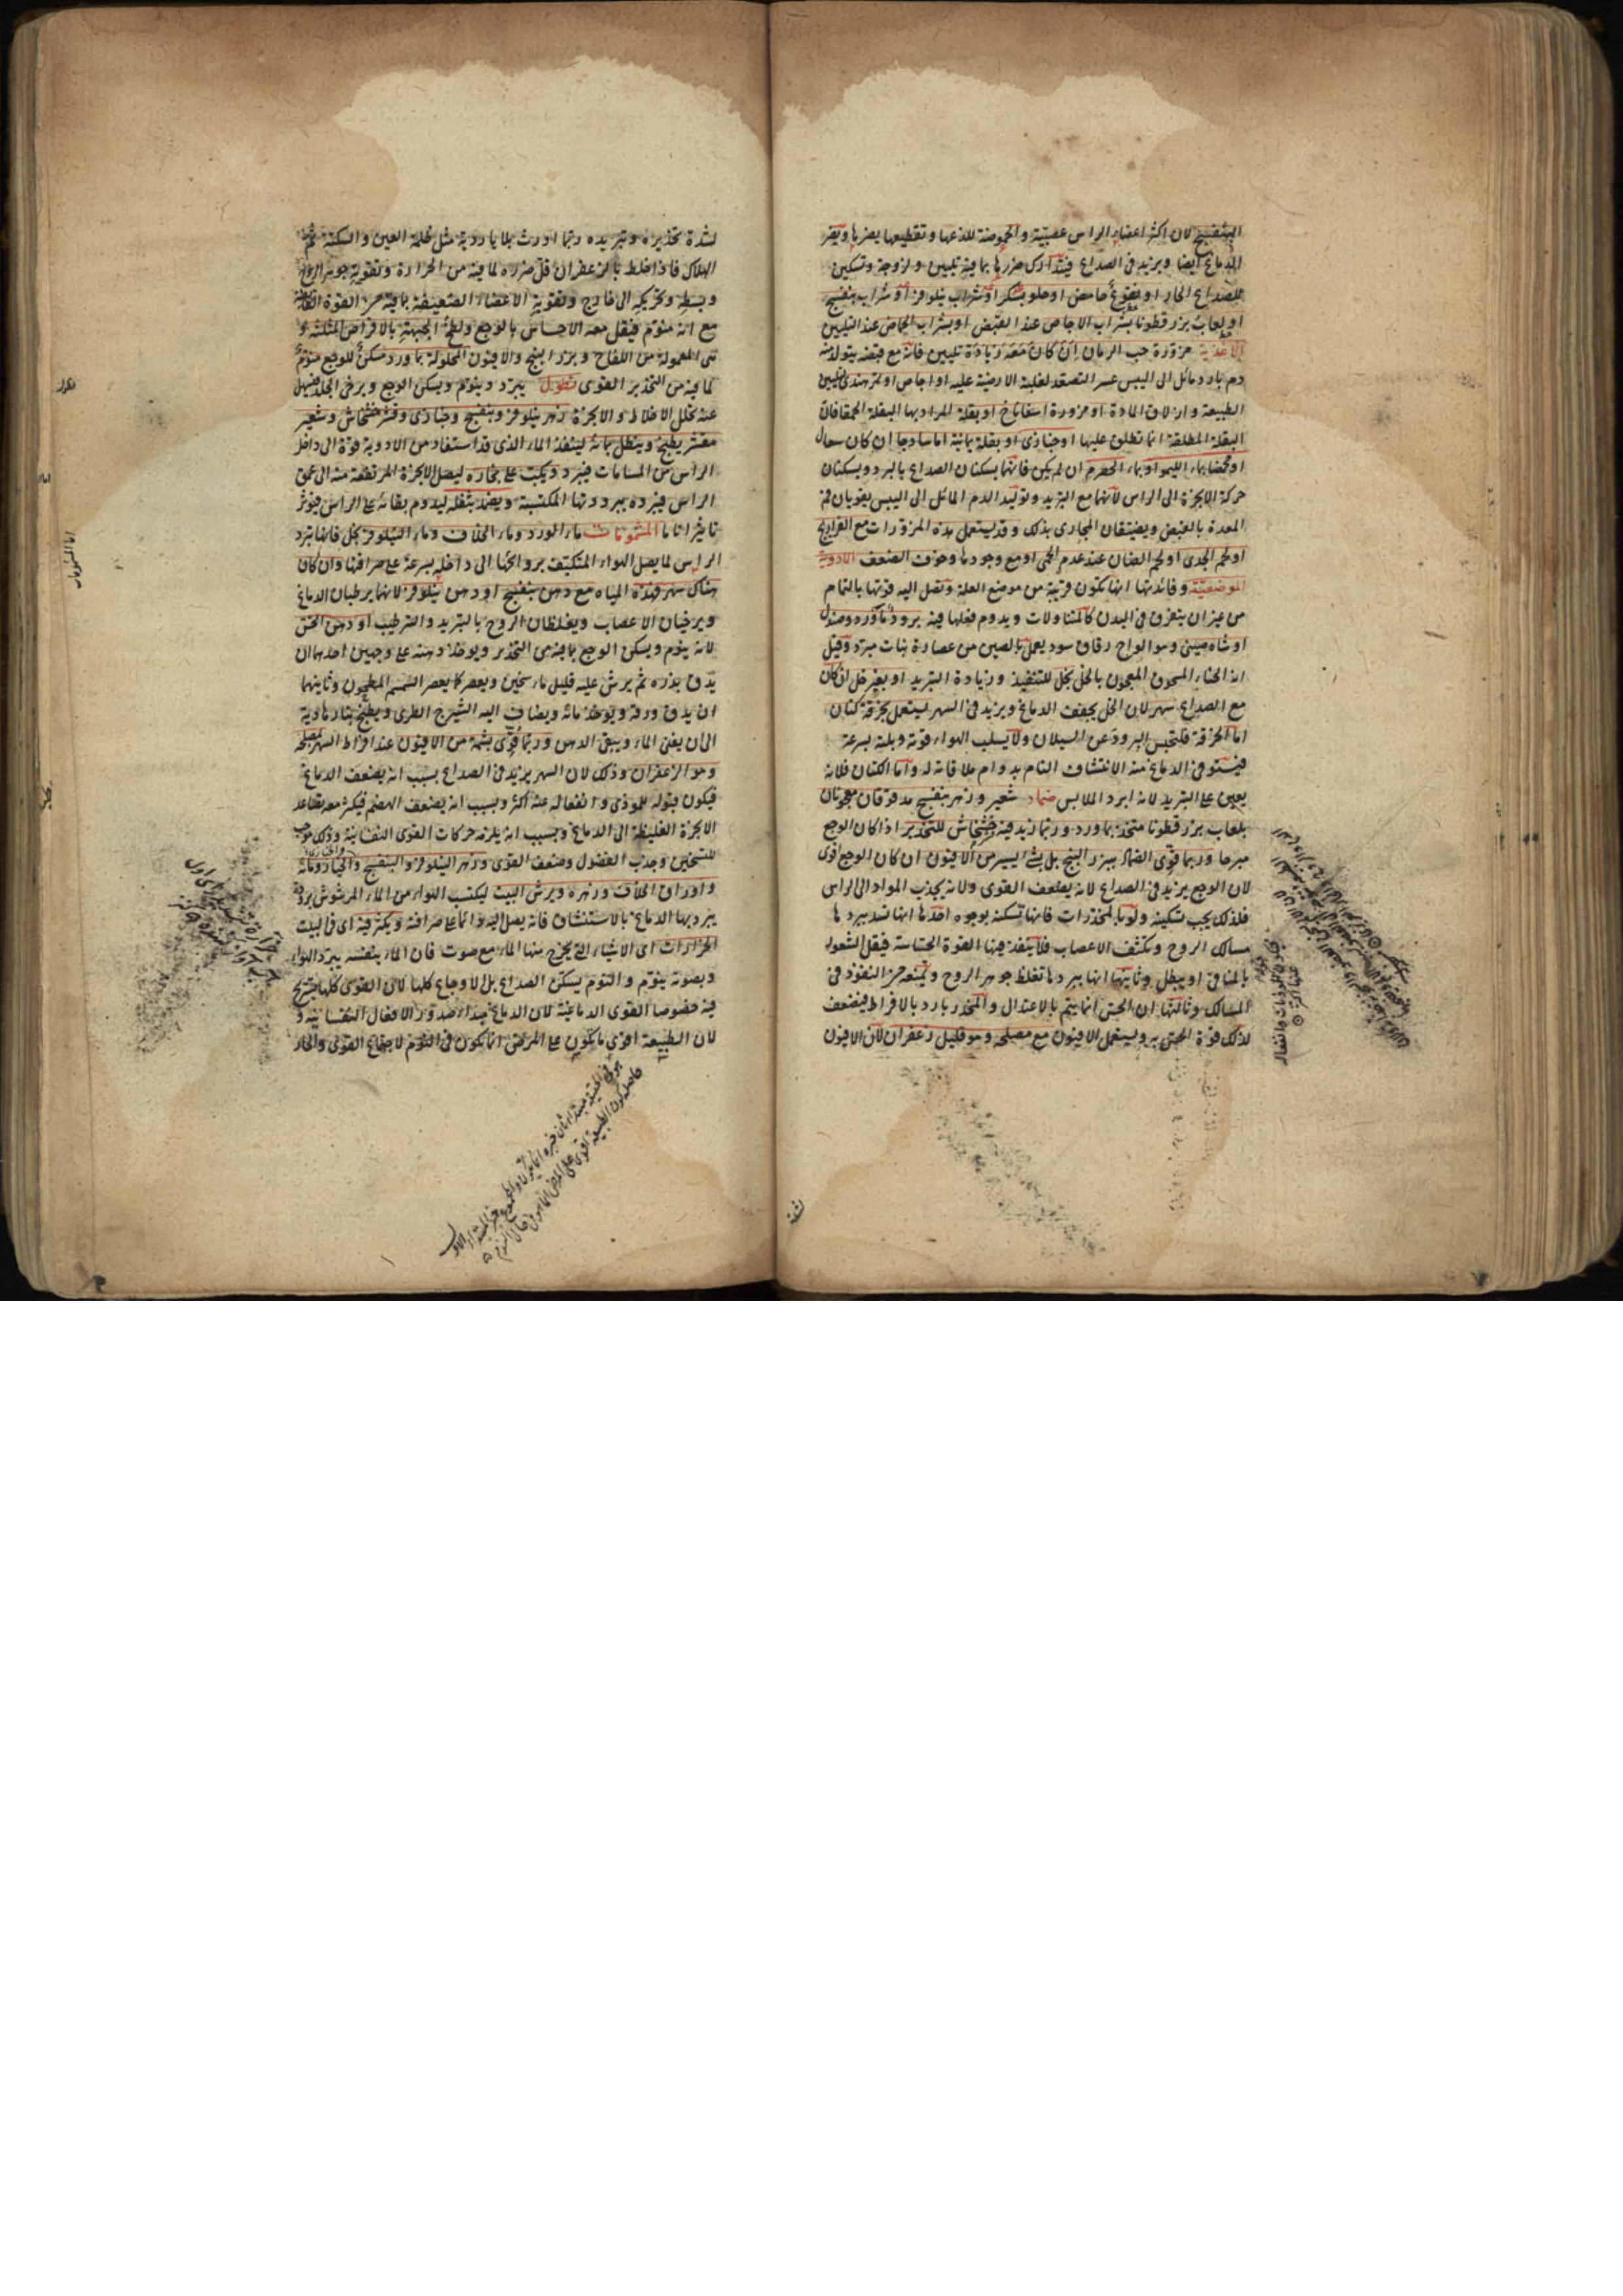 البنفسج لان اكثر اعضاء الراس عصبية والحموضة للذعها وتقطيعها يضرها ويضر
الدماغ ايضا ويزيد في الصداع فيتدارك ضررها بما فيه تليين ولزوجة وتسكين
للصداع الحار او نقوع حامض او حلو بسكر او شراب نيلوفر او شراب بنفسج
او لعاب بزر قطونا بشراب الاجاص عند القبض او بشراب الحماض عند التليين
الاغذية مزورة حب الرمان ان كان معه زيادة تليين فانه مع قبضه يتولد منه
دم بارد مائل الى اليبس عسر التصعد لغلبة الارضية عليه او اجاص او تمر هندي لتليين
الطبيعة وازلاق المادة او مزورة اسفاناخ او بقلة المراد بها البقلة الحمقا فان
البقلة المطلقة انما تطلق عليها او خبازى او بقلة يمانية اما ساذجا ان كان سعال
او محمضا بماء الليمو او بماء الحصرم ان لم يكن فانهما يسكنان الصداع بالبرد ويسكنان
حركة الابخرة الى الراس لانهما مع التبريد وتوليد الدم المائل الى اليبس يقويان فم
المعدة بالقبض ويضيقان المجارى بذلك وقد يستعمل هذه المزورات مع الفراريج
او لحم الجدى او لحم الضان عند عدم الحمى او مع وجودها وخوف الضعف الادوية
الموضعية وفائدتها انها تكون قريبة من موضع العلة وتصل اليه قوتها بالتمام
من غير ان يتفرق في البدن كالمتناولات ويدوم فعلها فيه برود ماورد وصندل
او شاه صينى وهو الواح رقاق سود يعمل بالصين من عصارة نبات مبرد وقيل
انه الحناء المسحوق المعجون بالخل بخل للتنفيذ وزيادة التبريد او بغير خل ان كان
مع الصداع سهر لان الخل يجفف الدماغ ويزيد في السهر ليستعمل بخرقة كتان
اما الخرقة فلتحبس البرود عن السيلان ولا يسلب الهواء قوته وبلته بسرعة
فيستوفى الدماغ منه الانتشاف التام بدوام ملاقاته له واما الكتان فلانه
يعين على التبريد لانه ابرد الملابس ضماد شعير وزهر بنفسج مدقوقان معجونان
بلعاب بزر قطونا متخذ بماورد وربما زيد فيه خشخاش للتخدير اذا كان الوجع
مبرحا وربما قوى الضماد ببزر البنج بل بشئ يسير من الافيون ان كان الوجع اقوى
لان الوجع يزيد في الصداع لانه يضعف القوى ولانه يجذب المواد الى الراس
فلذلك يجب تسكينه ولو بالمخدرات فانها تسكنه بوجوه احدها انها تسد ببردها
مسالك الروح وتكثف الاعصاب فلا ينفذ فيها القوة الحساسة فيقل الشعور
بالمنافى او يبطل وثانيها انها ببردها تغلظ جوهر الروح وتمنعه من النفوذ في
المسالك وثالثها ان الحس انما يتم بالاعتدال والمخدر بارد بالافراط فيضعف
لذلك قوة الحس به ويستعمل الافيون مع مصلحه وهو قليل زعفران لان الافيون
لشدة
لشدة تخديره وتبريده ربما اورث بلايا ردية مثل ظلمة العين والسكتة ثم
الهلاك فاذا خلط بالزعفران قل ضرره لما فيه من الحرارة وتقوية جوهر الروح
وبسطه وتحريكه الى خارج وتقوية الاعضاء الضعيفة بما فيه من القوة القابضة
مع انه منوم فيقل معه الاحساس بالوجع ولطخ الجبهة بالاقراص المثلثة و
هى المعمولة من اللفاح وبزر البنج والافيون المحلولة بماورد مسكن للوجع منوم
لما فيه من التخدير القوى نطول يبرد وينوم ويسكن الوجع ويرخى الجلد فيسهل
عنه تحلل الاخلاط والابخرة زهر نيلوفر وبنفسج وخبازى وقشر خشخاش وشعير
مقشر يطبخ وينطل بمائه لينفذ الماء الذى قد استفاد من الادوية قوة الى داخل
الراس من المسامات فيبرد ويكب على بخاره ليصل الابخرة المرتفعة منه الى عمق
الراس فيبرده ببرودتها المكتسبة ويضمد بثفله ليدوم بقائه على الراس فيوثر
تاثيرا تاما المشمومات ماء الورد وماء الخلاف وماء النيلوفر بخل فانها تبرد
الراس لما يصل الهواء المتكيف بروائحها الى داخله بسرعة على صرافتها وان كان
هناك سهر فهذه المياه مع دهن بنفسج او دهن نيلوفر لانهما يرطبان الدماغ
ويرخيان الاعصاب ويغلظان الروح بالتبريد والترطيب او دهن الخس
لانه ينوم ويسكن الوجع بما فيه من التخدير ويوخذ دهنه على وجهين احدهما ان
يدق بذره ثم يرش عليه قليل ماء سخين ويعصر كما يعصر السمسم المطحون وثانيهما
ان يدق ورقه ويوخذ مائه ويضاف اليه الشيرج الطرى ويطبخ بنار هادية
الى ان يفنى الماء ويبقى الدهن وربما قوى بشمة من الافيون عند افراط السهر بمصلحه
وهو الزعفران وذلك لان السهر يزيد في الصداع بسبب انه يضعف الدماغ
فيكون قبوله للموذى وانفعاله عنه اكثر وبسبب انه يضعف الهضم فيكثر معه تصاعد
الابخرة الغليظة الى الدماغ وبسبب انه يلزمه حركات القوى النفسانية وذلك موجب
للتسخين وجذب الفضول وضعف القوى وزهر النيلوفر والبنفسج والخيار ومائه
واوراق الخلاف وزهره ويرش البيت ليكتسب الهواء من الماء المرشوش برودة
يبرد بها الدماغ بالاستنشاق فانه يصل اليه دائما على صرافته ويكثر فيه اى في البيت
الخرارات اى الاشياء التى يخرج منها الماء مع صوت فان الماء بنفسه يبرد الهواء
وبصوته ينوم والنوم يسكن الصداع بل الاوجاع كلها لان القوى كلها تستريح
فيه خصوصا القوى الدماغية لان الدماغ مبداء صدور الافعال النفسانية و
لان الطبيعة اقوى ما يكون على المرض انما يكون في النوم لاجتماع القوى والحار